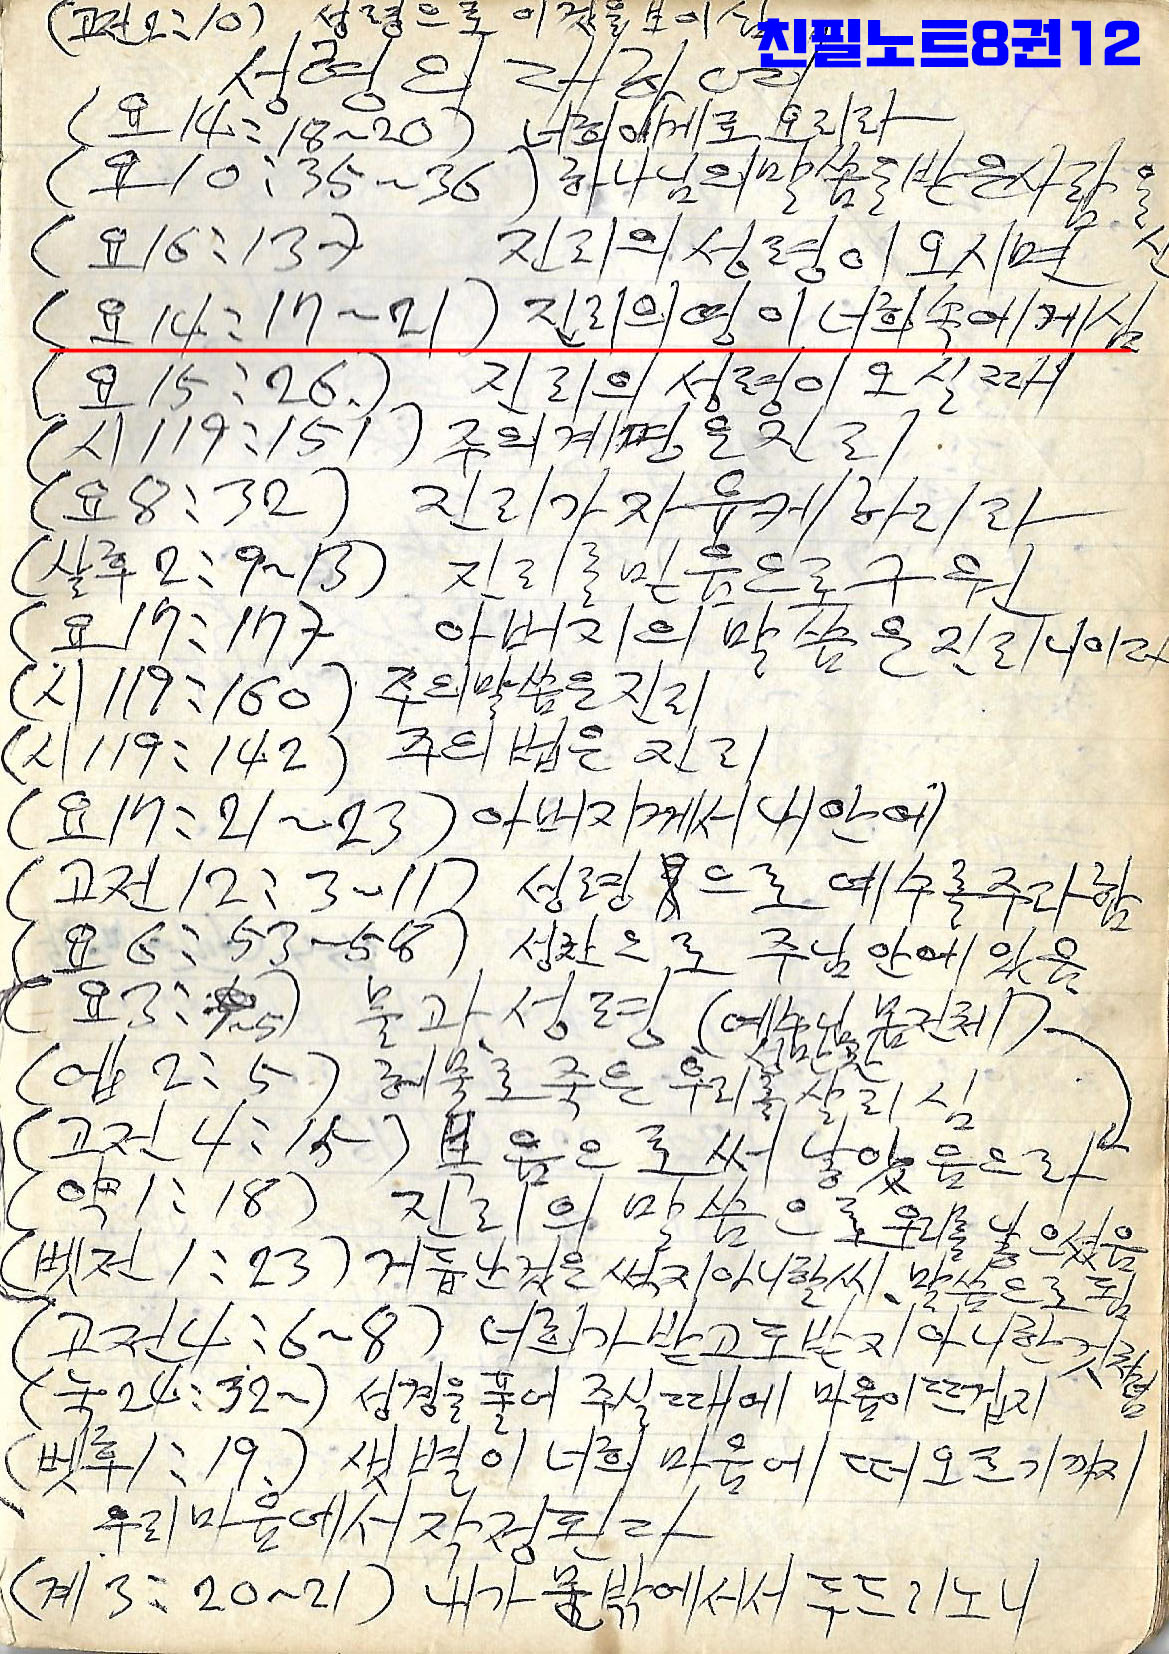 (고전2:10) 성령으로 이것을 보이심
친필노트8권12
성령의
(요14:18~20) 너희에게로 오리라
(요10:35~36) 하나님의말씀을받은사람을 신
(요16:13) 진리의 성령이 오시면
(요14:17~21) 진리의영이 너희속에계심
(요15:26) 진리의 성령이 오실때
(시119:151) 주의계명은진리
(요8:32) 진리가 자유케하리라
(살후2:9~13) 진리를믿음으로구원
(요17:17) 아버지의 말씀은진리니이다
(시119:160) 주의말씀은진리
(시119:142) 주의법은 진리
(요17:21~23) 아버지께서 내안에
(고전12:3~11) 성령으로 예수를주라함
(요6:53~58) 성찬으로 주님안에있음
(요3:5) 물과 성령 (예수님 몸전체)
(엡2:5) 죽은 우리를살리심
(고전4:15) 복음으로써 낳았음으라
(약1:18) 진리의 말씀으로우리를낳으셨음
(벳전1:23) 거듭난것은 썩지아니할씨、말씀으로됨
(고전4:6~8) 너희가받고도받지아니한것처럼
(눅24:32~) 성경을풀어 주실때에 마음이뜨겁지
(벳후1:19.) 샛별이 너희 마음에 떠오르기까지
우리마음에서작정된다
(계3:20~21) 내가 문밖에서서 두드리노니